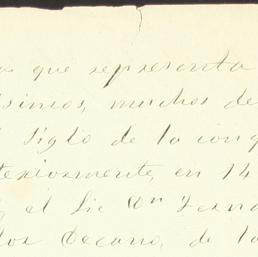 que representa
simos, muchos de
siglo de la conq
teriormente, en 14
el Lic Dn Fern
los Oceano, de la